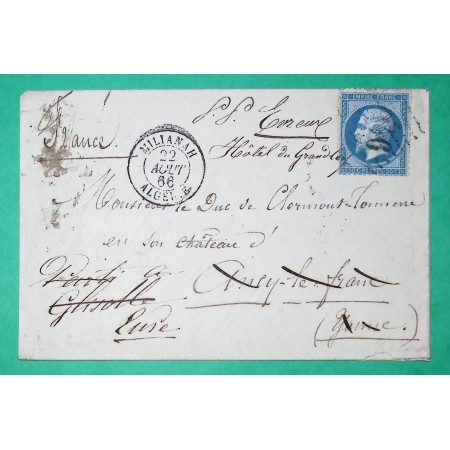 P.P. Evreux
France
Hôtel du Grand Cerf
MILIANAH
22
AOUT
66
ALGERIE
EMPIRE FRANC
Monsieur le Duc de Clermont-Tonnerre
en son château d'
Ancy-le-franc
Parti à
Glisolle
Eure
(Yonne)